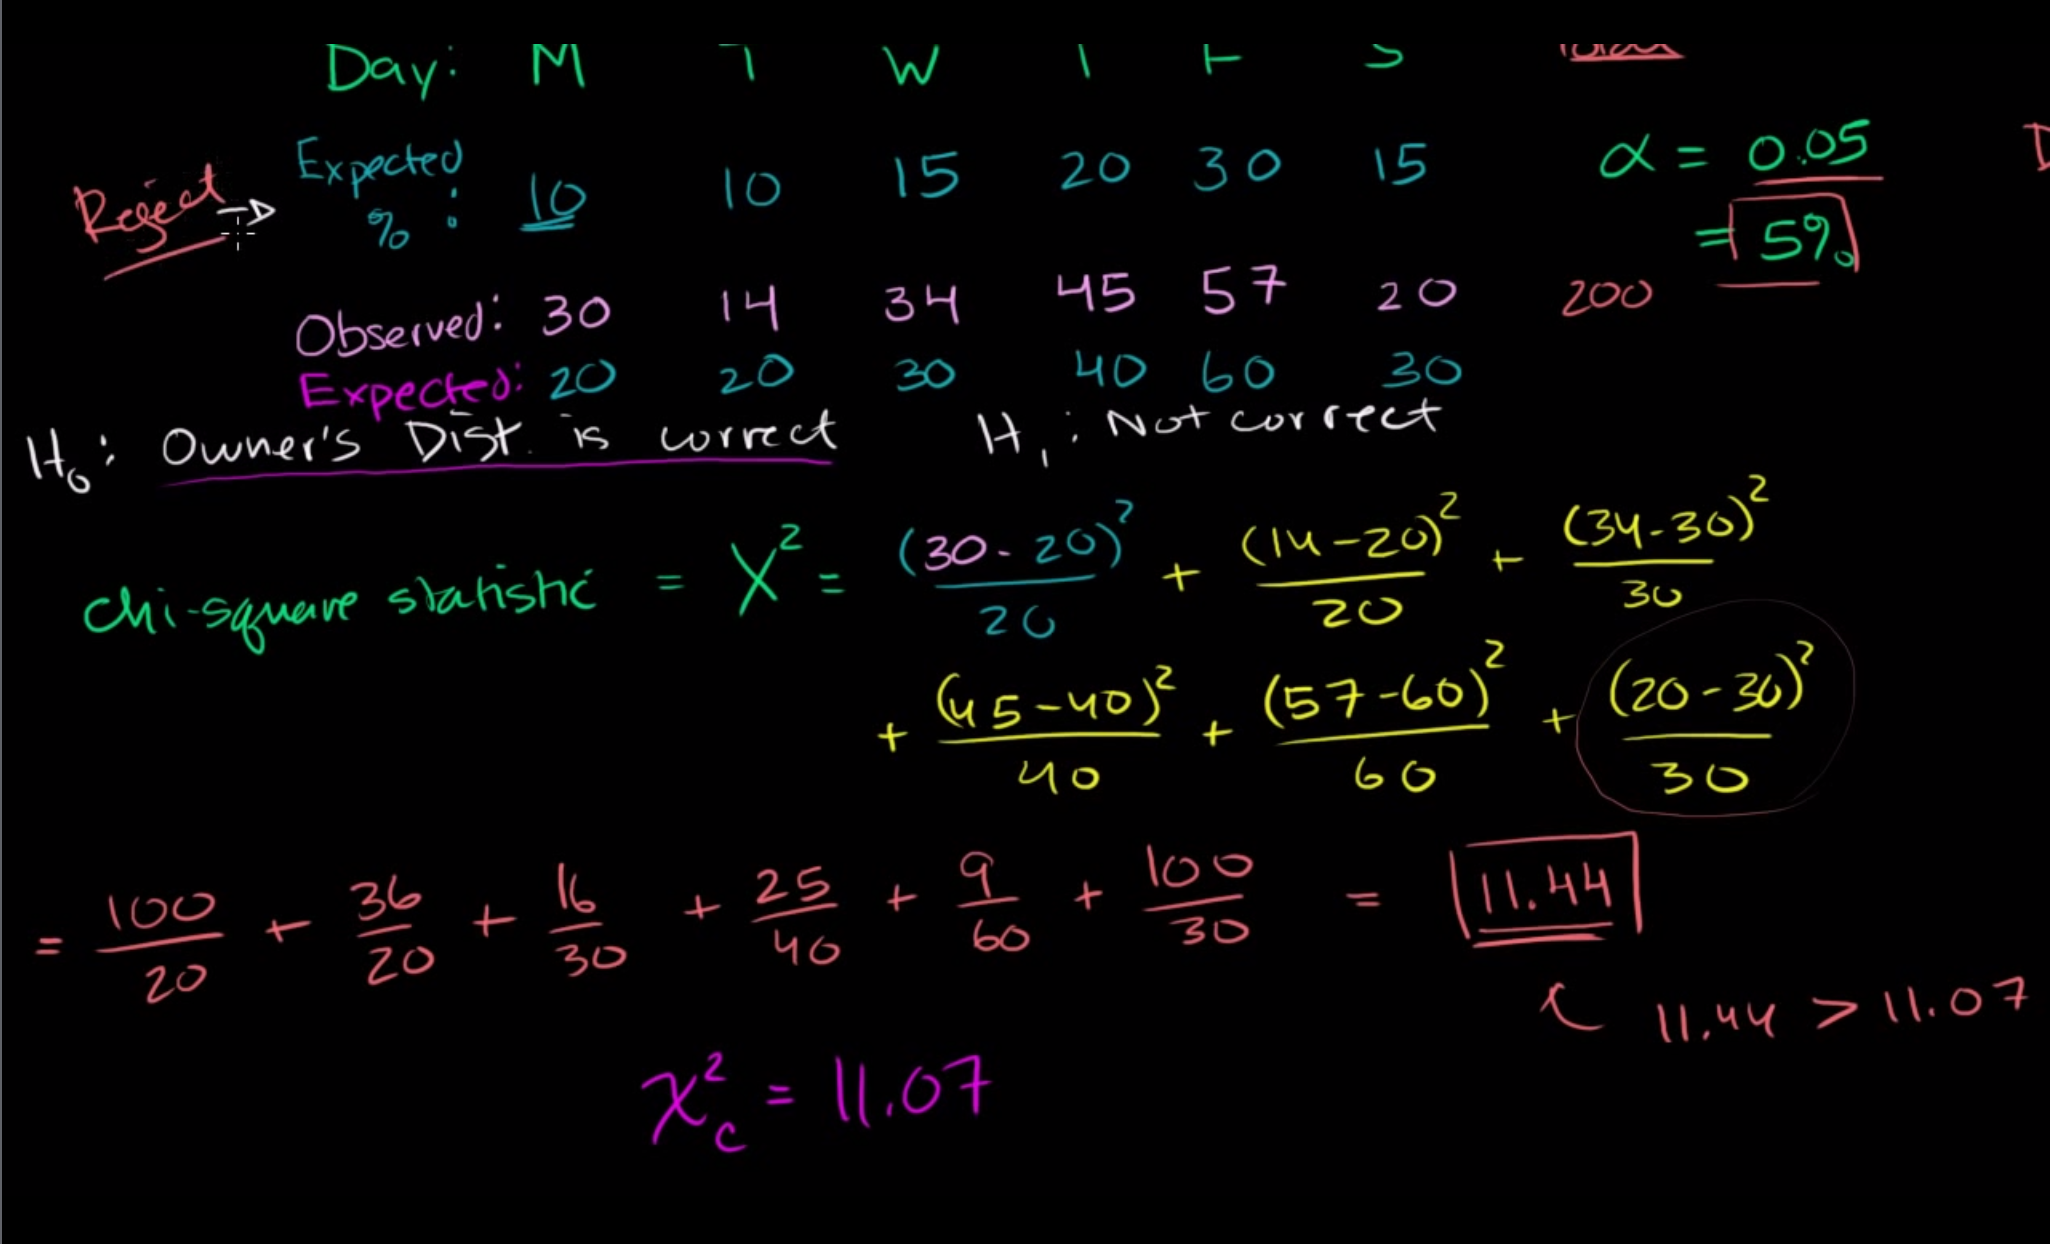 Day: M T W T F S
Reject → Expected %: 10 10 15 20 30 15
α = 0.05
= 5%
Observed: 30 14 34 45 57 20 200
Expected: 20 20 30 40 60 30
H₀: Owner's Dist. is correct H₁: Not correct
Chi-square statistic = X² = (30-20)²/20 + (14-20)²/20 + (34-30)²/30
+ (45-40)²/40 + (57-60)²/60 + (20-30)²/30
= 100/20 + 36/20 + 16/30 + 25/40 + 9/60 + 100/30 = 11.44
11.44 > 11.07
χ²c = 11.07